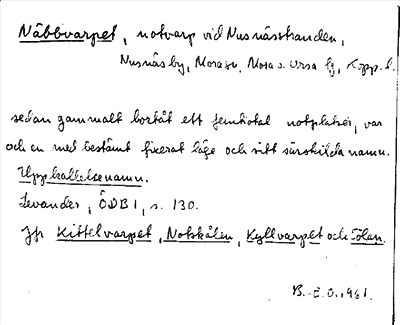 Näbbvarpet, notvarp vid Nusnässtranden,
Nusnäs by, Mora sn, Mora o. Orsa tg, Kopp. l.
sedan gammalt bortåt ett femtiotal notplatser, var
och en med bestämt fixerat läge och sitt särskilda namn.
Uppkallelsenamn.
Levander, ÖDB I, s. 130.
Jfr Kittelvarpet, Notskålen, Kyllvarpet och Fölan.
B.-E.O. 1961.